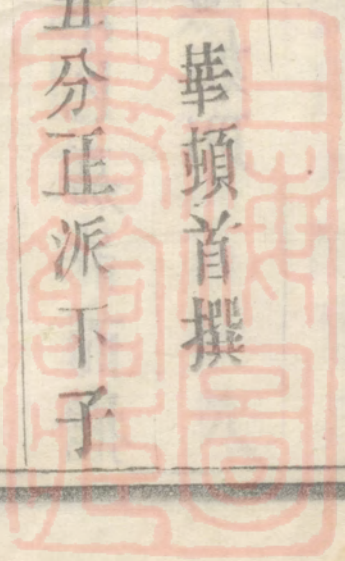 華頓首撰
分正派下子